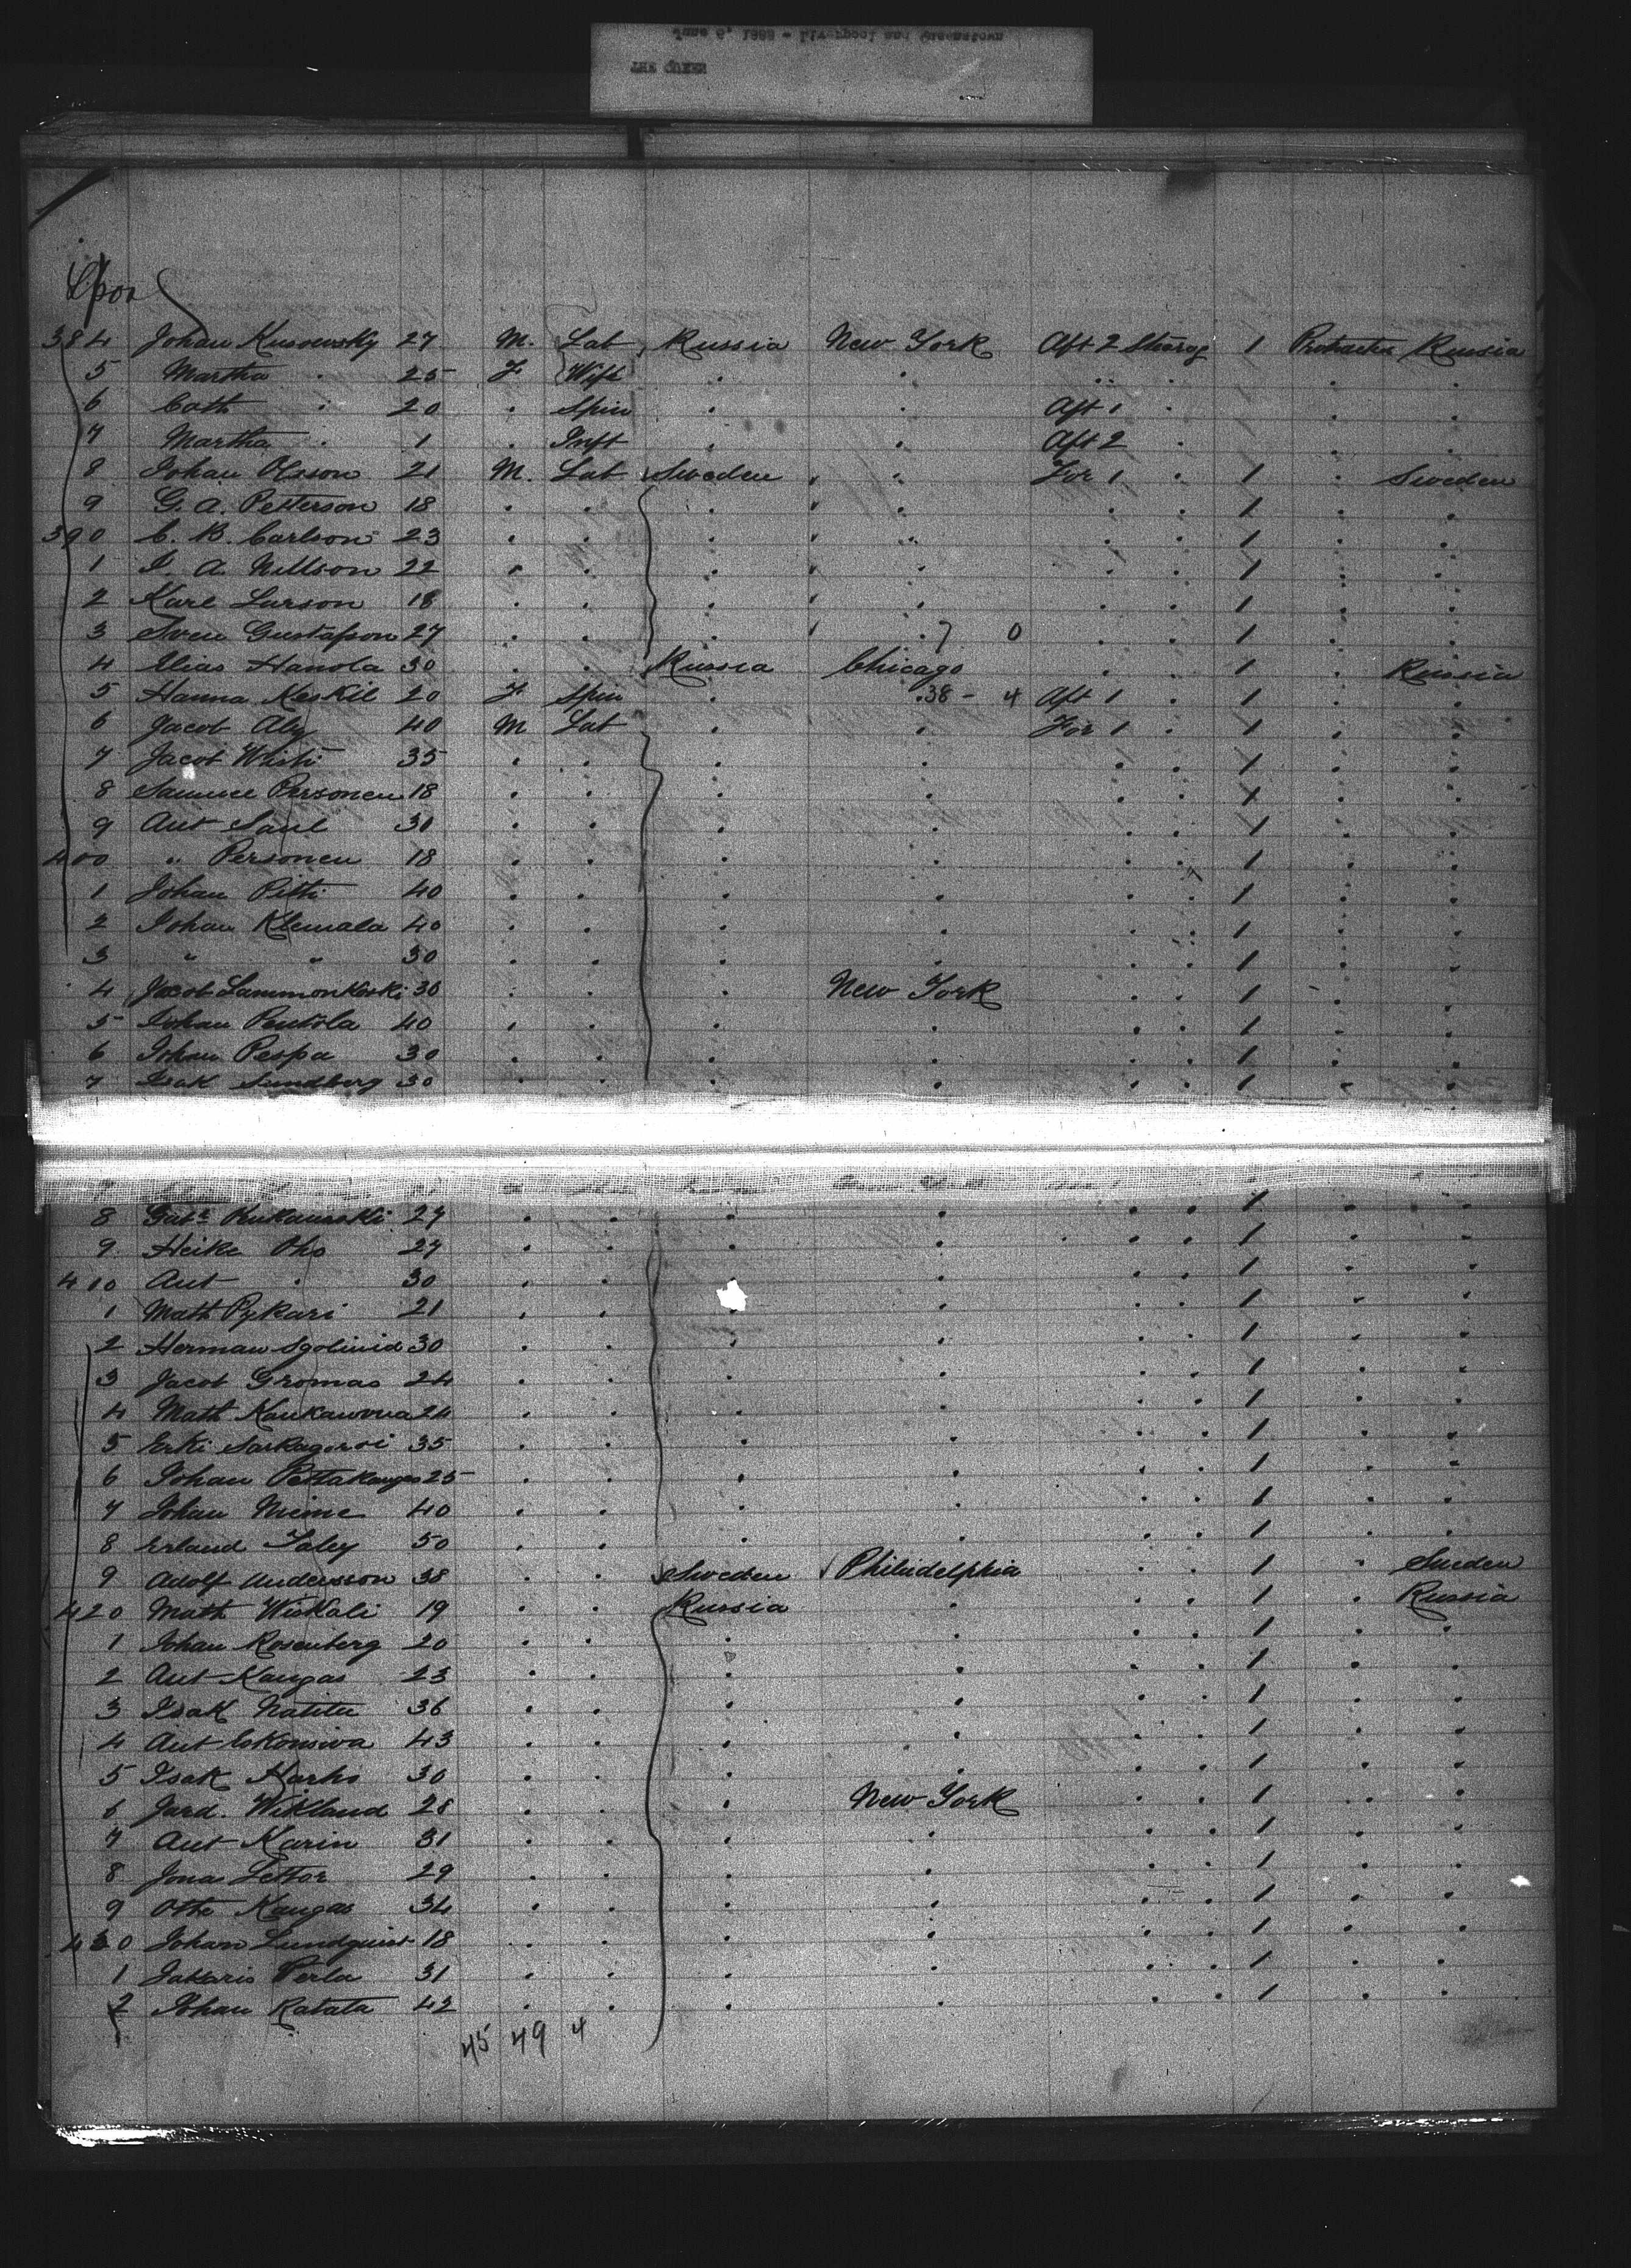 June 6, 1888 - Liverpool and Queenstown
THE QUEEN
Lpool
384 Johan Kusowsky 27 M. Lab Russia New York Aft 2 Steerag 1 Protracted Russia
5 Martha " 25 F Wife " " " " " "
6 Cath " 20 " Spin " " Aft 1 " " "
7 Martha " 1 " Inft " " Aft 2 " " "
8 Johan Olsson 21 M. Lab Sweden " " For 1 " 1 " Sweden
9 G. A. Petterson 18 " " " " " " 1 " "
390 C. B. Carlson 23 " " " " " " 1 " "
1 I. A. Nillson 22 " " " " " " 1 " "
2 Karl Larson 18 " " " " " " 1 " "
3 Sven Gustafson 27 " " " " 0 " " 1 " "
4 Elias Hanola 30 " " Russia Chicago " " 1 " Russia
5 Hanna Keskil 20 F Spin " 38 - 4 Aft 1 " 1 " "
6 Jacob Aly 40 M Lab " " For 1 " 1 " "
7 Jacob 35 " " " " " " 1 " "
8 Samuel Personen 18 " " " " " " 1 " "
9 Ant Saul 30 " " " " " " 1 " "
400 " Personen 18 " " " " " " 1 " "
1 Johan Pitti 40 " " " " " " 1 " "
2 Johan Klemala 40 " " " " " " 1 " "
3 " " 30 " " " " " " 1 " "
4 Jacob Lammonkoski 30 " " " New York " " 1 " "
5 Johan Pentola 40 " " " " " " 1 " "
6 Johan Pespa 30 " " " " " " 1 " "
7 Isak Sundberg 30 " " " " " " 1 " "
8 27 " " " " " " 1 " "
9 Heike Oho 27 " " " " " " 1 " "
410 Ant " 30 " " " " " " 1 " "
1 Math Pykari 21 " " " " " " 1 " "
2 Herman 30 " " " " " " 1 " "
3 Jacob Gromas 24 " " " " " " 1 " "
4 Math 24 " " " " " " 1 " "
5 Erki 35 " " " " " " 1 " "
6 Johan Pettakangas 25 " " " " " " 1 " "
7 Johan Nieme 40 " " " " " " 1 " "
8 Erland Faley 50 " " " " " " 1 " "
9 Adolf Andersson 38 " " Sweden Philidelphia " " 1 " Sweden
420 Math Wiskali 19 " " Russia " " " 1 " Russia
1 Johan Rosenberg 20 " " " " " " 1 " "
2 Ant Kangas 23 " " " " " " 1 " "
3 Isak 36 " " " " " " 1 " "
4 Ant 43 " " " " " " 1 " "
5 Isak Harho 30 " " " " " " 1 " "
6 Jard. Wikland 28 " " " New York " " 1 " "
7 Ant Karin 31 " " " " " " 1 " "
8 Jona Lettor 29 " " " " " " 1 " "
9 Otto Kangas 34 " " " " " " 1 " "
430 Johan Lundquist 18 " " " " " " 1 " "
1 Jakaris Perla 31 " " " " " " 1 " "
2 Johan Ratata 42 " " " " " " 1 " "
45 49 4